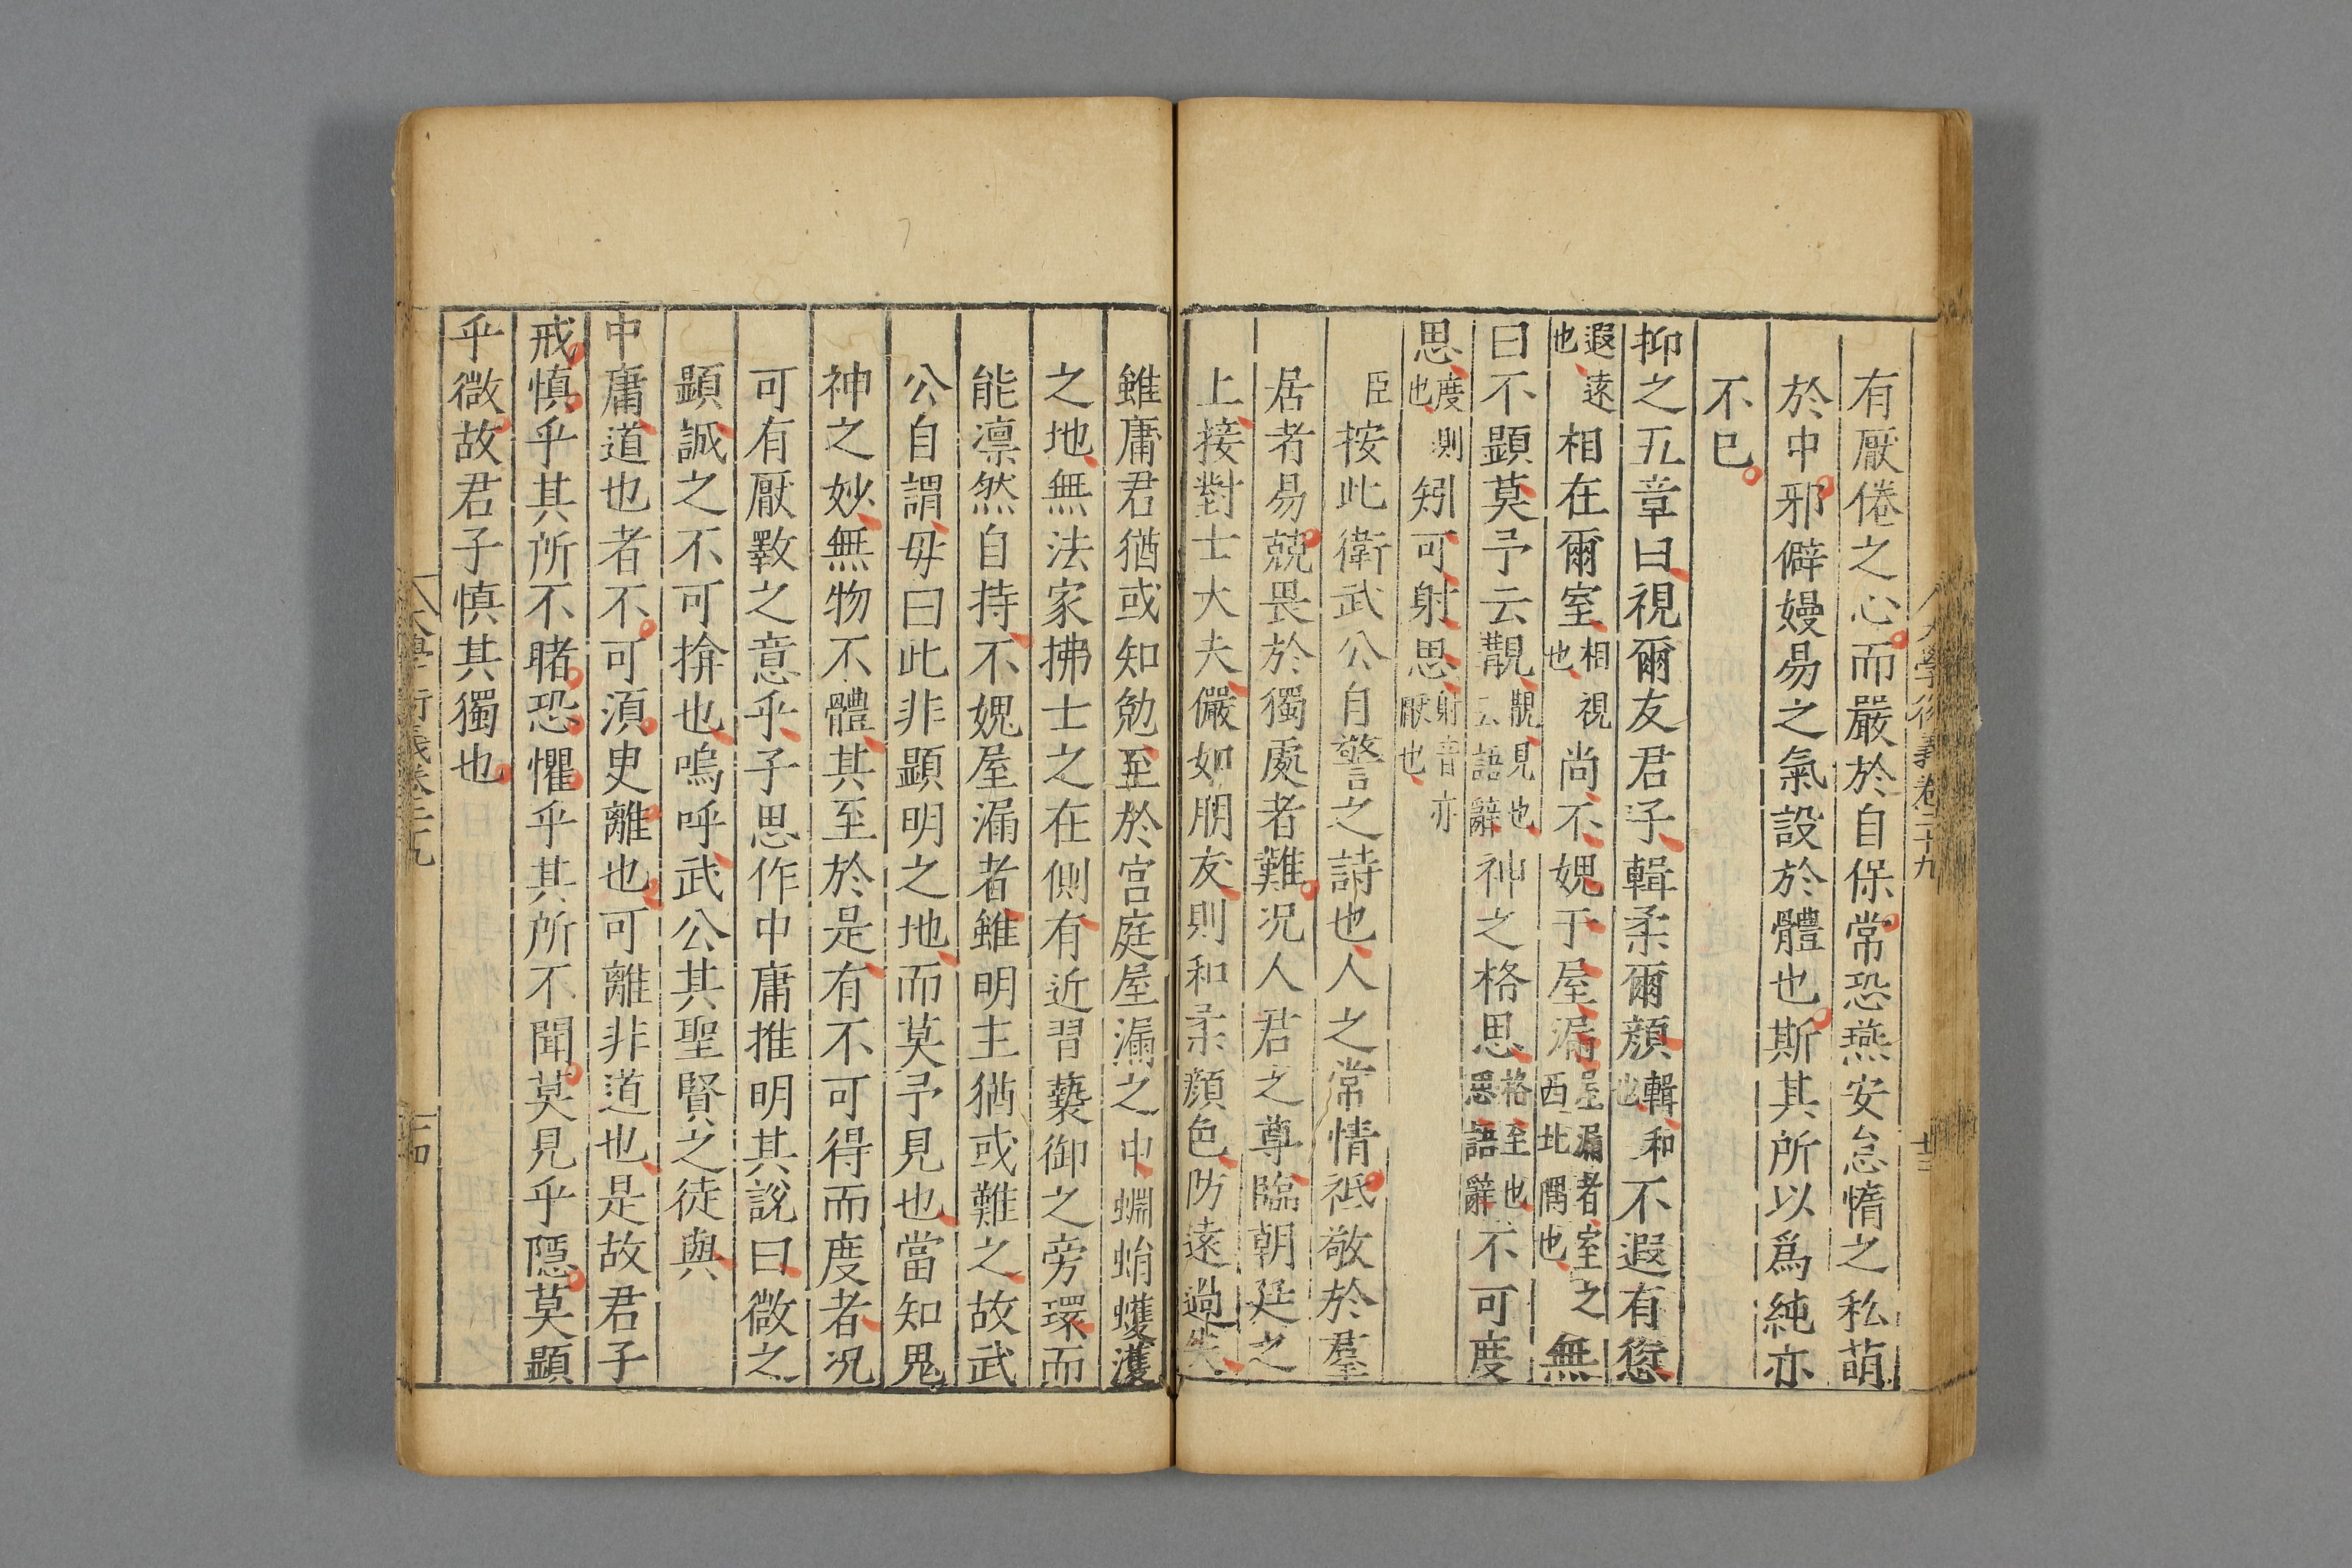 大學衍義卷二十九
廿三
有厭倦之心而嚴於自保常恐燕安怠惰之私萌
於中邪僻嫚易之氣設於體也斯其所以爲純亦
不已
抑之五章曰視爾友君子輯柔爾顔輯和也不遐有愆
遐遠也相在爾室相視也尚不媿于屋漏屋漏者室之西北隅也無
曰不顯莫予云覯覯見也云語辭神之格思格至也思語辭不可度
思度也矧可射思射音亦厭也
臣按此衛武公自警之詩也人之常情祗敬於羣
居者易兢畏於獨處者難况人君之尊臨朝廷之
上接對士大夫儼如朋友則和柔顔色防遠過失
雖庸君猶或知勉至於宫庭屋漏之中蜵蜎蠖濩
之地無法家拂士之在側有近習褻御之旁環而
能凛然自持不媿屋漏者雖明主猶或難之故武
公自謂毋曰此非顯明之地而莫予見也當知鬼
神之妙無物不體其至於是有不可得而度者况
可有厭斁之意乎子思作中庸推明其說曰微之
顯誠之不可揜也嗚呼武公其聖賢之徒與
中庸道也者不可湏臾離也可離非道也是故君子
戒慎乎其所不睹恐懼乎其所不聞莫見乎隱莫顯
乎微故君子慎其獨也
大學衍義卷二十九